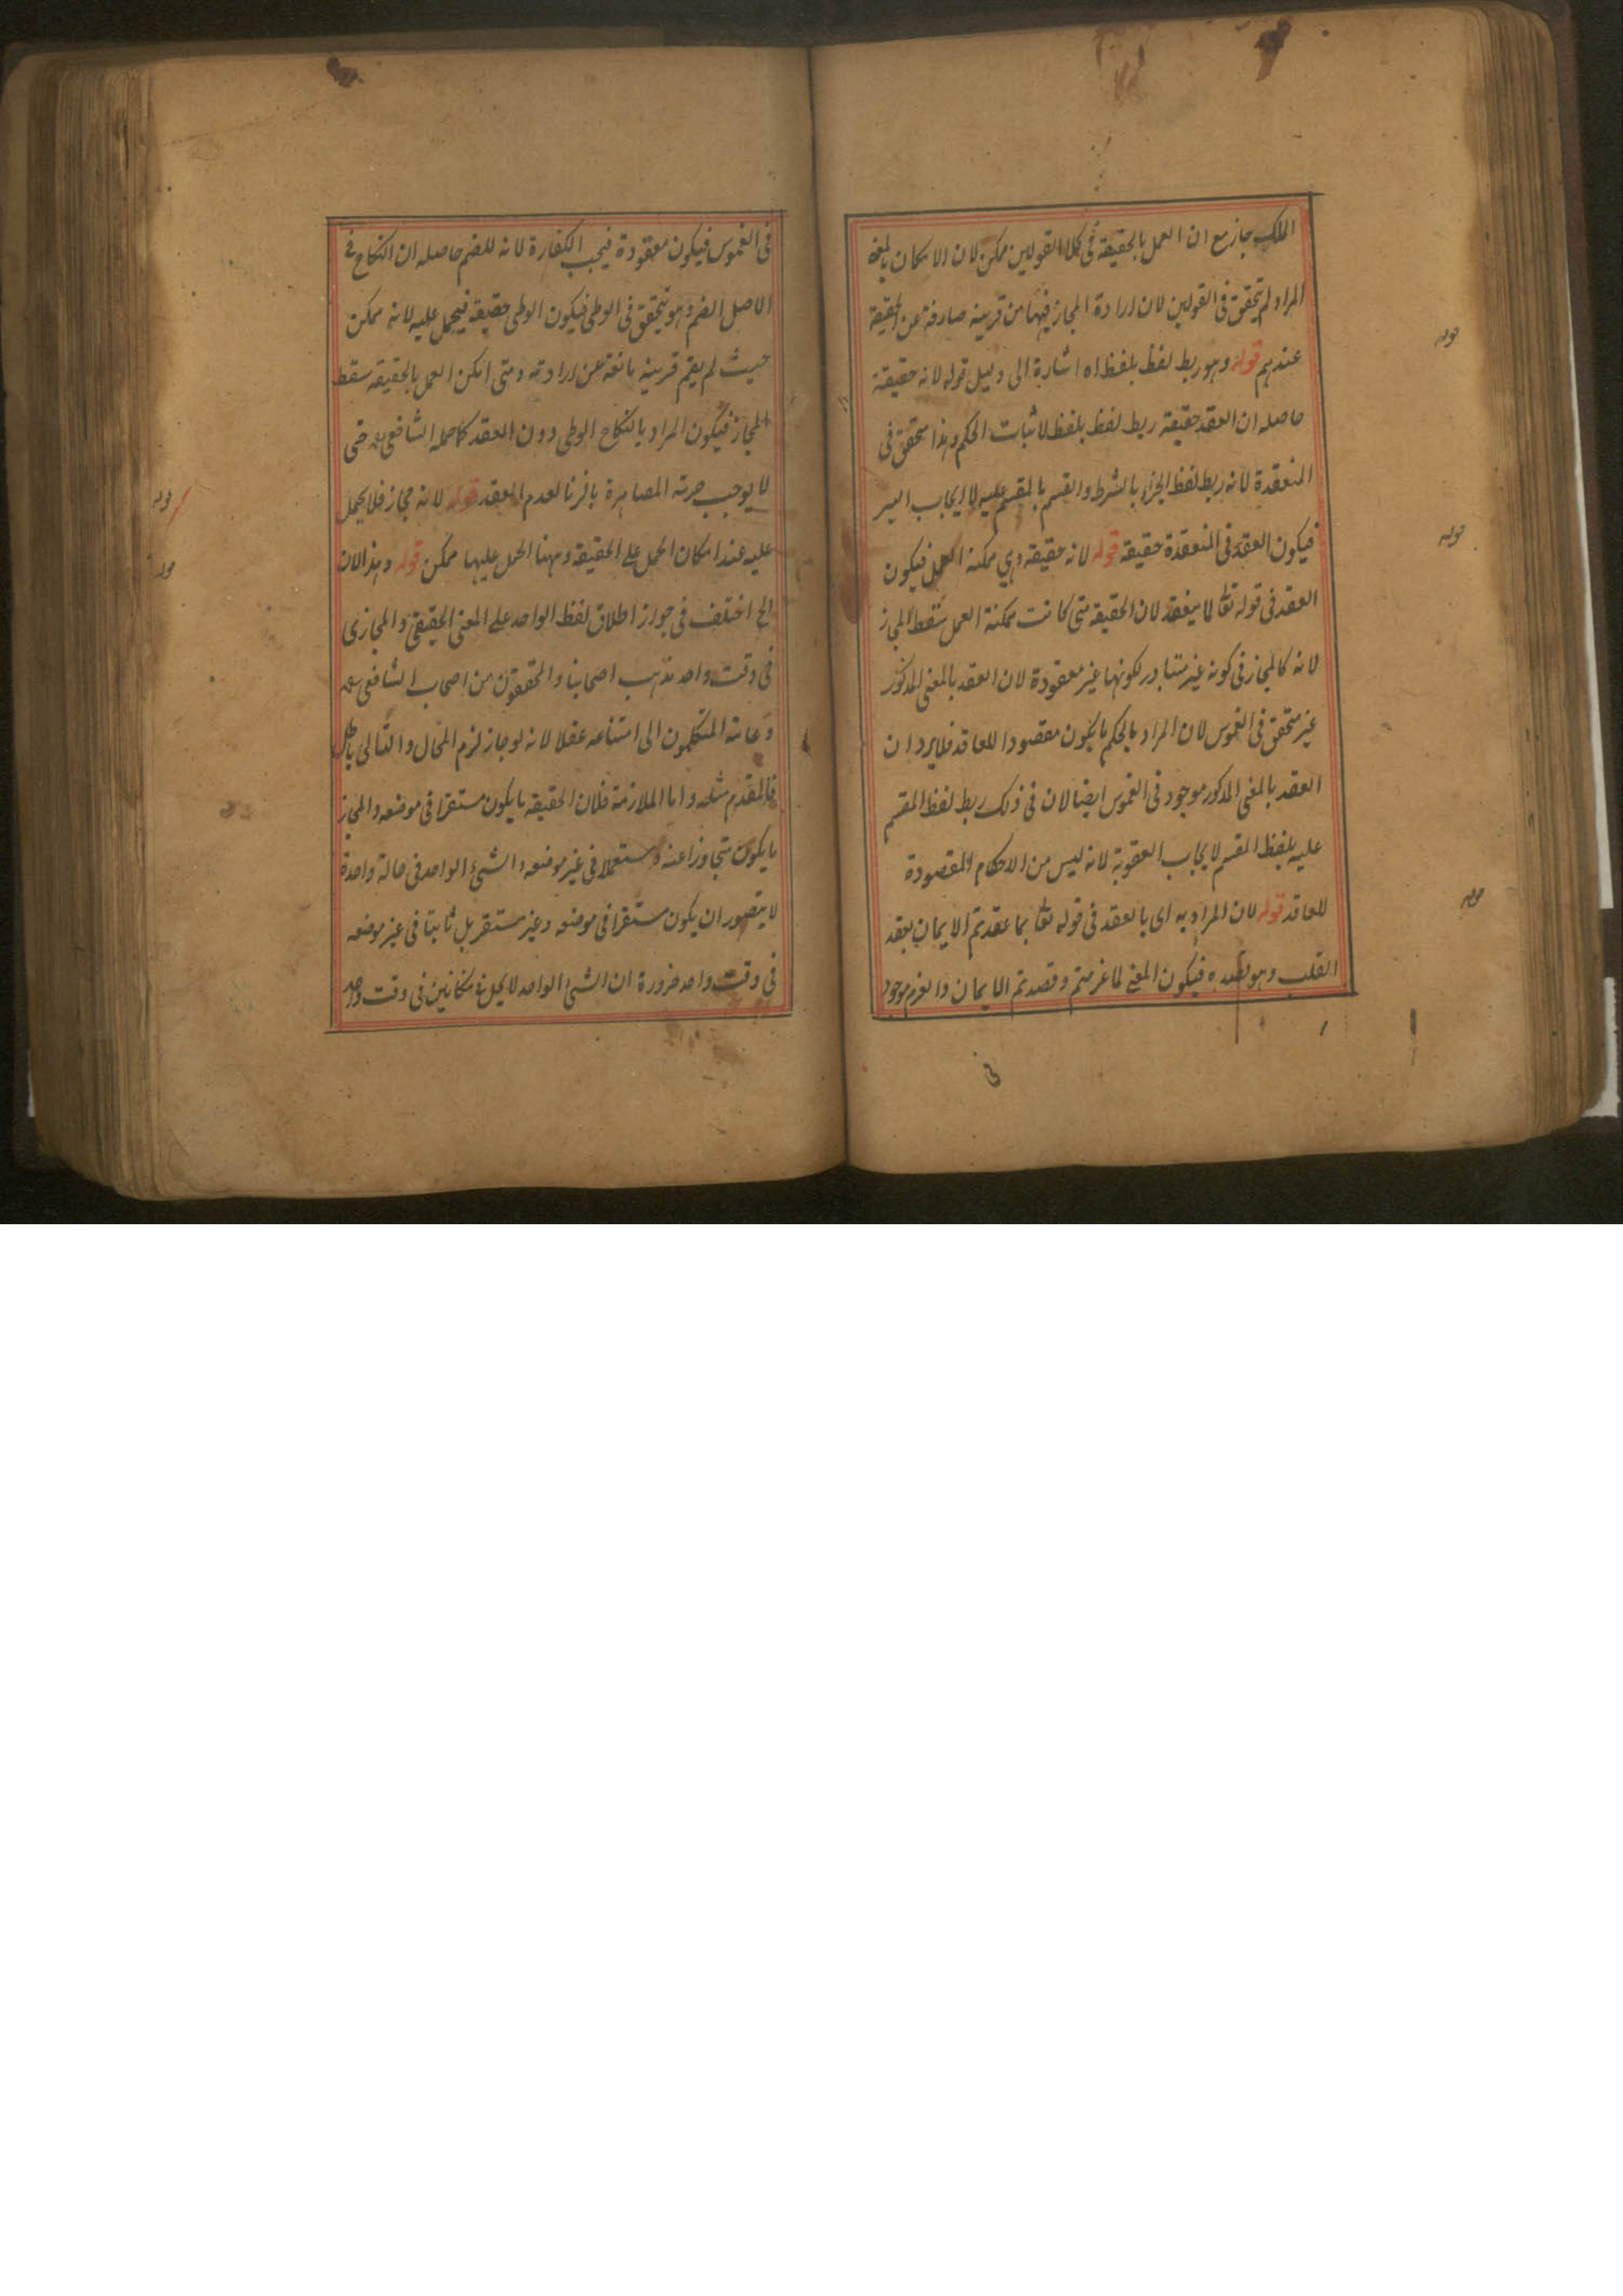 الملك جاز مع ان العمل بالحقيقة فى كلا القولين ممكن لان الامكان بالمعنى
المراد لم يتحقق فى القولين لان ارادة المجاز فيهما من قرينة صارفة عن الحقيقة
عندهم قوله وهو ربط لفظ بلفظ اه اشارة الى دليل قوله لانه حقيقة
حاصله ان العقد حقيقة ربط لفظ بلفظ لاثبات الحكم وهذا متحقق فى
المنعقدة لانه ربط لفظ الجزاء بالشرط والقسم بالمقسم عليه لايجاب البر
فيكون العقد فى المنعقدة حقيقة قوله لانه حقيقة وهي ممكنة العمل فيكون
العقد فى قوله تعا لما ينعقد لان الحقيقة متى كانت ممكنة العمل سقط المجاز
لانه كالمجاز فى كونه غير متبادر لكونها غير معقودة لان العقد بالمعنى المذكور
غير متحقق فى الغموس لان المراد بالحكم ما يكون مقصودا للعاقد فلا يرد ان
العقد بالمعنى المذكور موجود فى الغموس ايضا لان فى ذلك ربط لفظ المقسم
عليه بلفظ المقسم لايجاب العقوبة لانه ليس من الاحكام المقصودة
للعاقد قوله لان المراد به اى بالعقد فى قوله تعا بما عقدتم الايمان بعقد
القلب وهو قصده فيكون المعنى لما عزمتم وقصدتم الايمان والعزم موجود
فى الغموس فيكون معقودة فيجب الكفارة لانه للضم حاصله ان النكاح فى
الاصل الضم وهو يتحقق فى الوطى فيكون الوطى حقيقة فيحمل عليه لانه ممكن
حيث لم يقم قرينة مانعة عن ارادته ومتى امكن العمل بالحقيقة سقط
المجاز فيكون المراد بالنكاح الوطى دون العقد كما حمله الشافعى رح حتى
لا يوجب حرمة المصاهرة بالزنا لعدم العقد قوله لانه مجاز فلا يحمل
عليه عند امكان الحمل على الحقيقة وههنا الحمل عليها ممكن قوله وهذا لان
الخ اختلف فى جواز اطلاق لفظ الواحد على المعنى الحقيقى والمجازى
فى وقت واحد مذهب اصحابنا والمحققون من اصحاب الشافعى رح
وعامة المتكلمون الى امتناعه عقلا لانه لو جاز لزم المحال والتالى باطل
فالمقدم مثله واما الملازمة فلان الحقيقة ما يكون مستقرا فى موضعه والمجاز
ما يكون متجاوزا عنه ومستعملا فى غير موضعه والشىء الواحد فى حالة واحدة
لا يتصور ان يكون مستقرا فى موضعه وغير مستقر بل ثابتا فى غير موضعه
فى وقت واحد ضرورة ان الشىء الواحد لا يحل فى مكانين فى وقت واحد
قوله
قوله
قوله
قوله
قوله